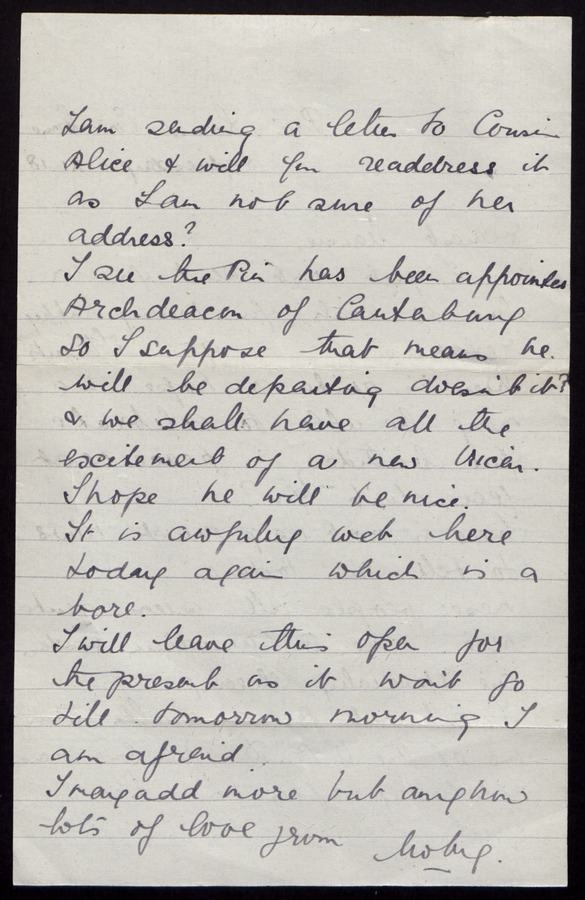 I am sending a letter to Cousin
Alice & will you readdress it
as I am not sure of her
address?
I see the Pin has been appointed
Archdeacon of Canterbury
so I suppose that means he
will be departing doesn't it?
& we shall have all the
excitement of a new Vicar.
I hope he will be nice.
It is awfully wet here
today again which is a
bore.
I will leave this open for
the present as it won't go
till tomorrow morning I
am afraid
I may add more but anyhow
lots of love from